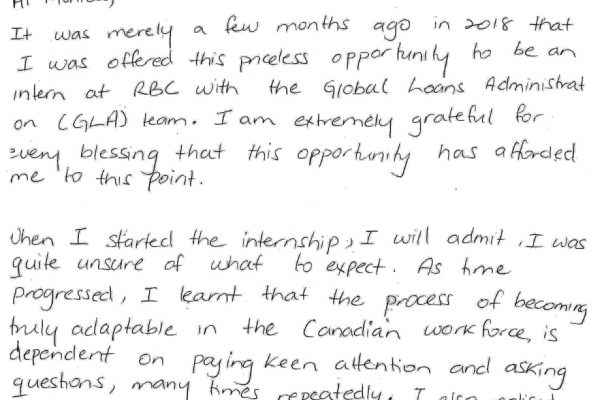 It was merely a few months ago in 2018 that
I was offered this priceless opportunity to be an
intern at RBC with the Global Loans Administrat
on (GLA) team. I am extremely grateful for
every blessing that this opportunity has afforded
me to this point.
When I started the internship, I will admit, I was
quite unsure of what to expect. As time
progressed, I learnt that the process of becoming
truly adaptable in the Canadian workforce, is
dependent on paying keen attention and asking
questions, many times repeatedly. I also